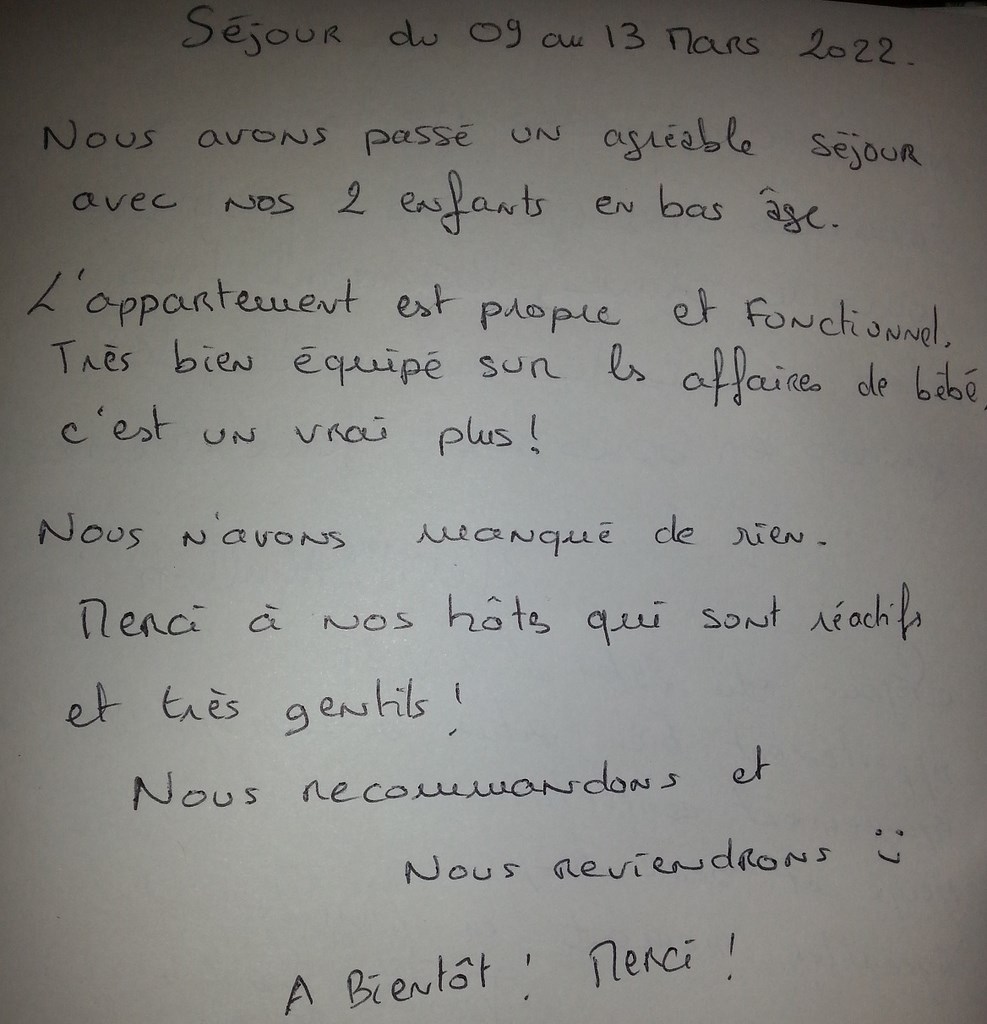 Séjour du 09 au 13 Mars 2022.
Nous avons passé un agréable séjour
avec nos 2 enfants en bas âge.
L'appartement est propre et fonctionnel.
Très bien équipé sur les affaires de bébé,
c'est un vrai plus !
Nous n'avons manqué de rien.
Merci à nos hôtes qui sont réactifs
et très gentils !
Nous recommandons et
Nous reviendrons :)
A Bientôt ! Merci !